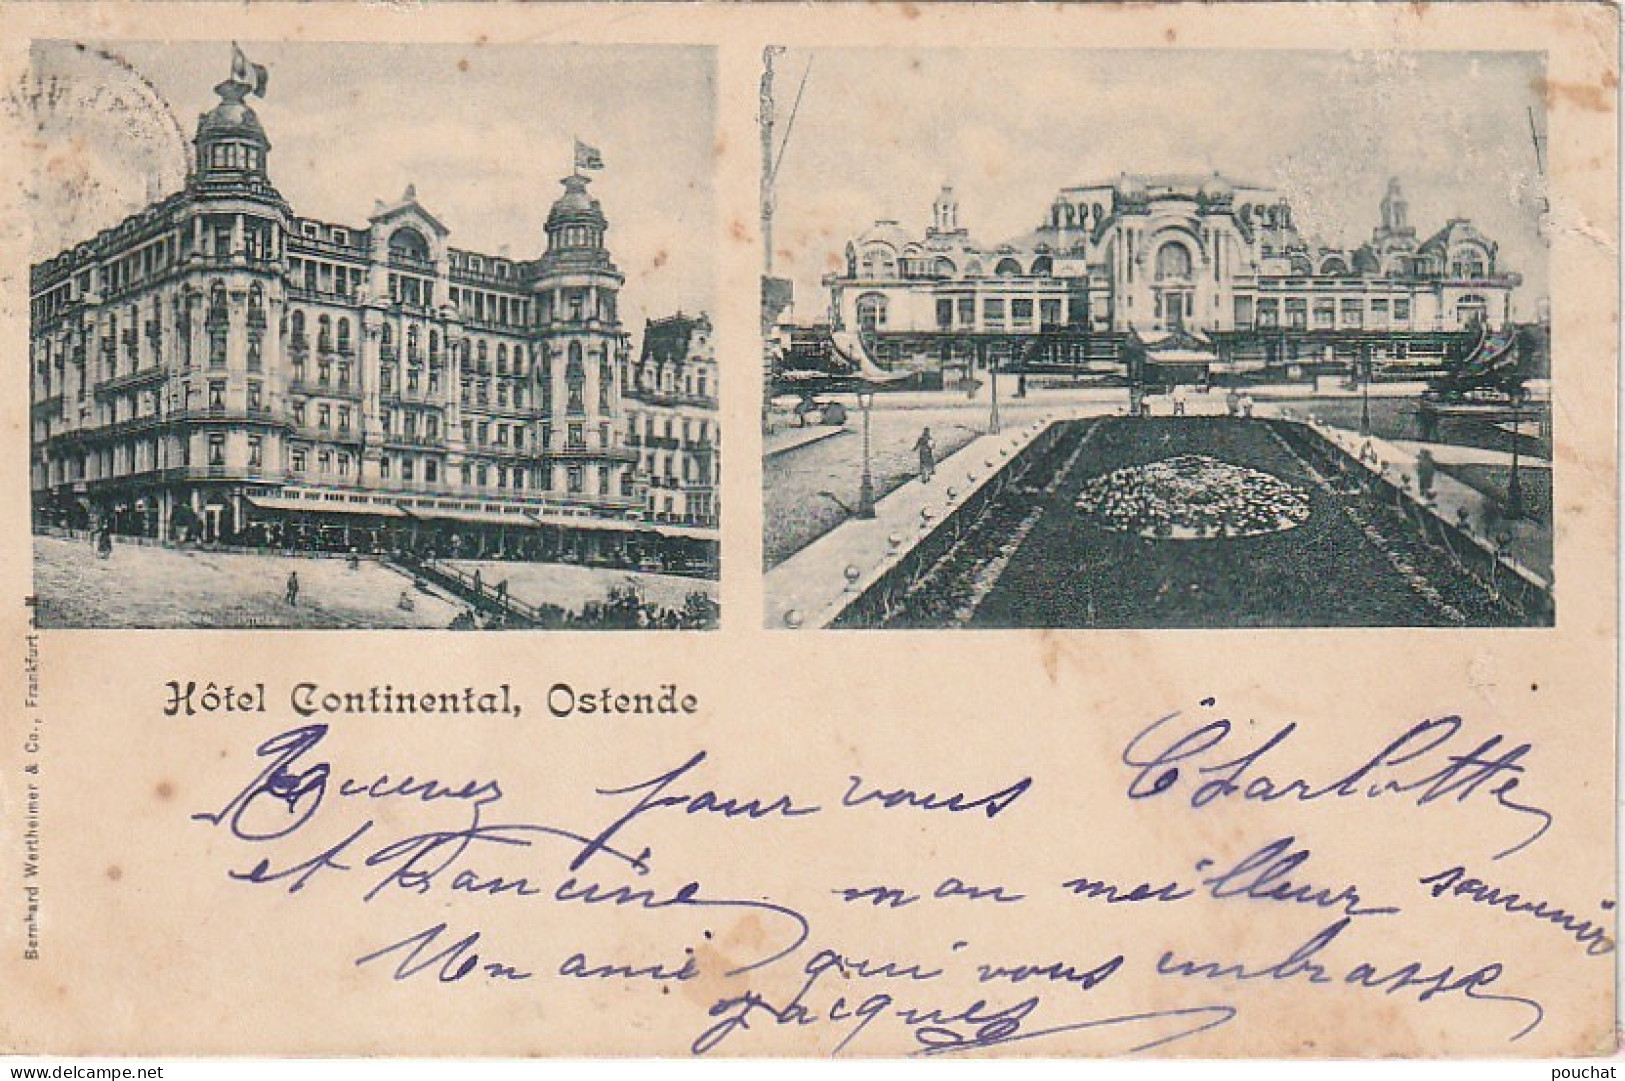 Hôtel Continental, Ostende
Recevez pour vous Charlotte
et Francine mon meilleur souvenir
Un ami qui vous embrasse
Jacques
Bernhard Wertheimer & Co., Frankfurt a. M.
delcampe.net
pouchat